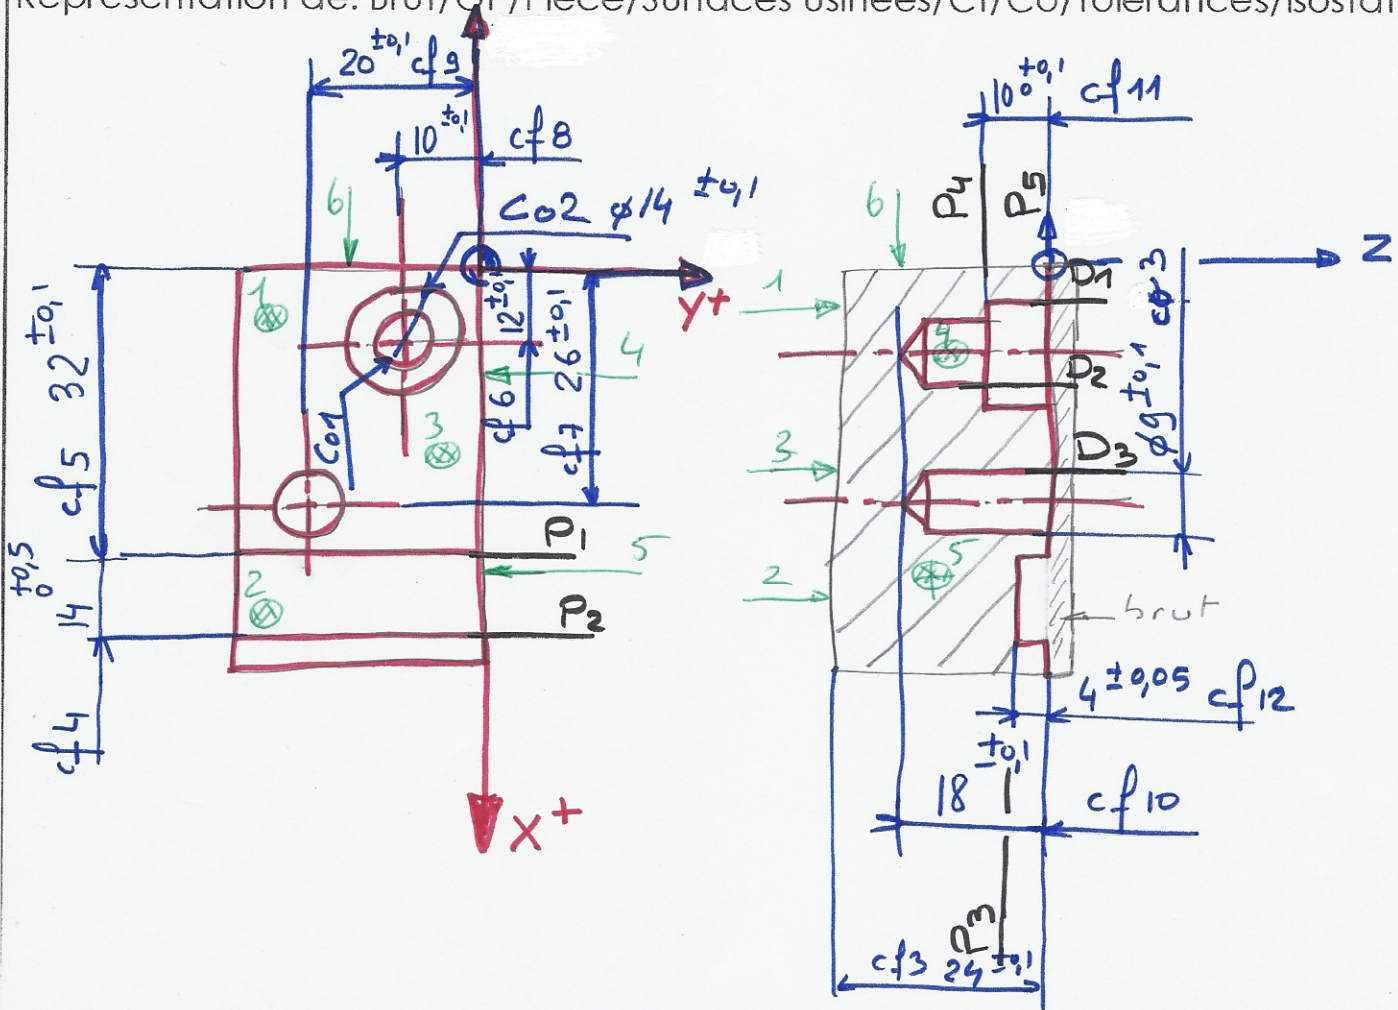 Représentation de: Brut/OP/Pièce/Surfaces usinées/Cf/Co/Tolérances/Isostat
20 ±0,1 cf 9
10 ±0,1 cf 8
Co2 ø14 ±0,1
6
1
Y+
12 ±0,1
cf 6
26 ±0,1
cf 7
4
32 ±0,1
cf 5
Co1
3
P1
5
+0,5
0
14
2
P2
cf 4
X+
10 +0,1
0
cf 11
P4
P5
6
Z
D1
1
co 3
4
D2
ø9 ±0,1
3
D3
5
2
brut
4 ±0,05 cf 12
18 ±0,1
cf 10
P3
cf 3 24 ±0,1